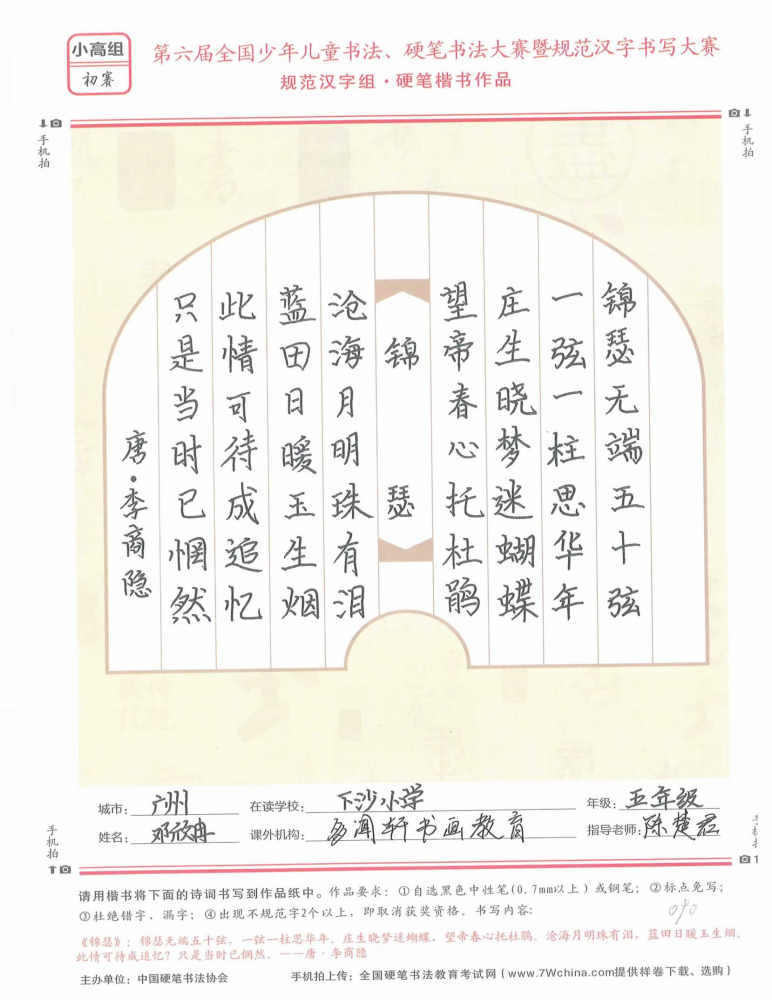 小高组
初赛
第六届全国少年儿童书法、硬笔书法大赛暨规范汉字书写大赛
规范汉字组·硬笔楷书作品
手机拍
手机拍
锦瑟无端五十弦
一弦一柱思华年
庄生晓梦迷蝴蝶
望帝春心托杜鹃
锦瑟
沧海月明珠有泪
蓝田日暖玉生烟
此情可待成追忆
只是当时已惘然
唐·李商隐
城市：广州 在读学校：下沙小学 年级：五年级
姓名：邓欣冉 课外机构：多闻轩书画教育 指导老师：陈楚君
手机拍
手机拍
请用楷书将下面的诗词书写到作品纸中。作品要求：①自选黑色中性笔(0.7mm以上）或钢笔；②标点免写；
③杜绝错字、漏字；④出现不规范字2个以上，即取消获奖资格。书写内容：
090
《锦瑟》：锦瑟无端五十弦，一弦一柱思华年。庄生晓梦迷蝴蝶，望帝春心托杜鹃。沧海月明珠有泪，蓝田日暖玉生烟。
此情可待成追忆？只是当时已惘然。——唐·李商隐
主办单位：中国硬笔书法协会 手机拍上传：全国硬笔书法教育考试网（www.7Wchina.com提供样卷下载、选购）